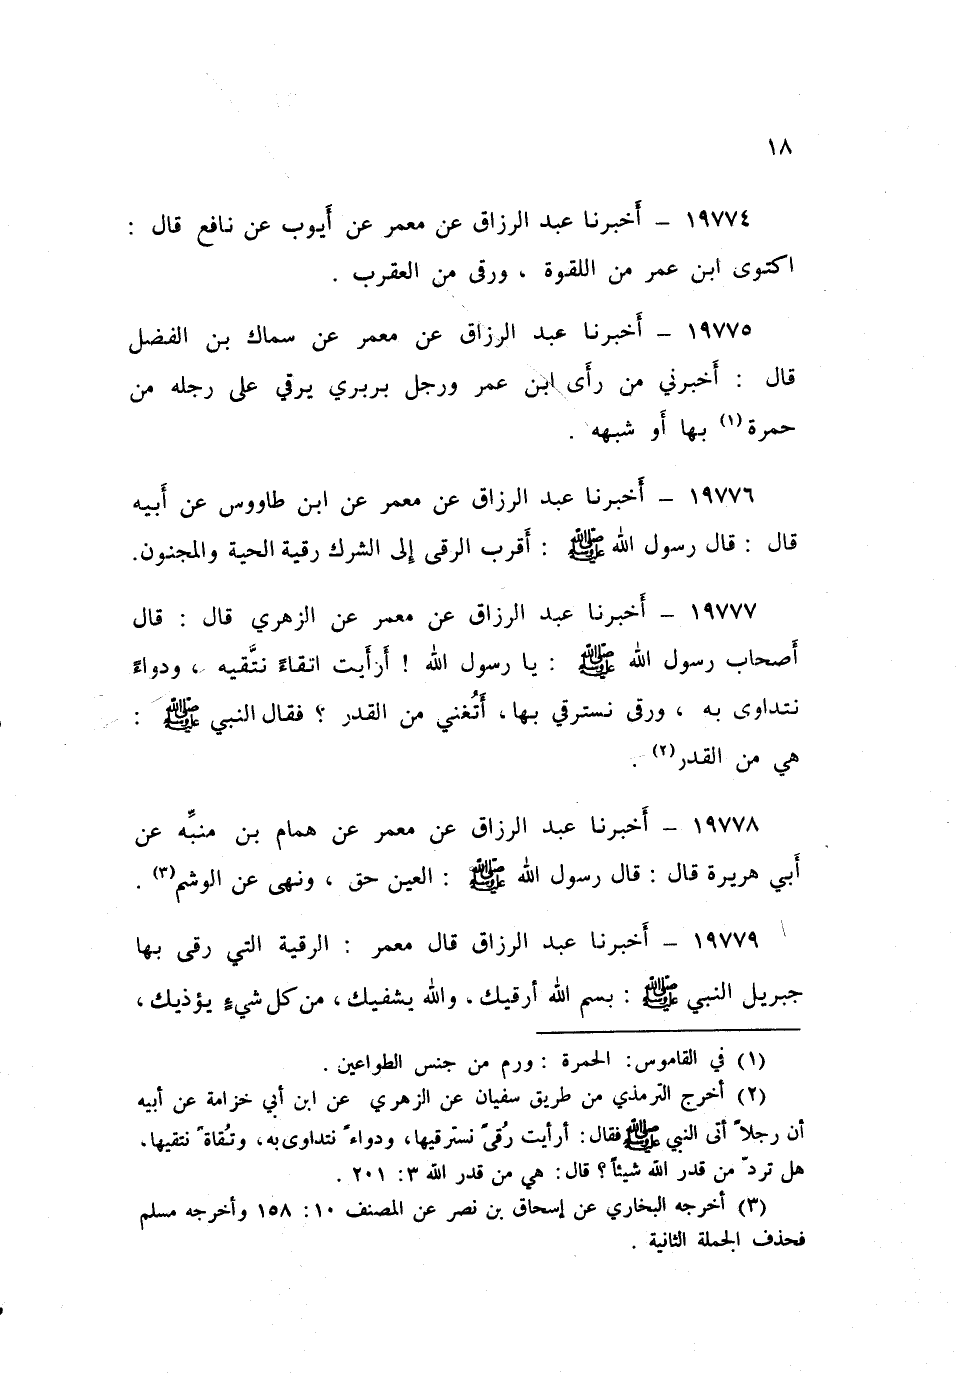 ١٨
١٩٧٧٤ – أَخبرنا عبد الرزاق عن معمر عن أَيوب عن نافع قال :
اكتوى ابن عمر من اللقوة ، ورقى من العقرب .
١٩٧٧٥ – أَخبرنا عبد الرزاق عن معمر عن سماك بن الفضل
قال : أَخبرني من رأَى ابن عمر ورجل بربري يرقي على رجله من
حمرة(١) بها أَو شبهه .
١٩٧٧٦ – أَخبرنا عبد الرزاق عن معمر عن ابن طاووس عن أَبيه
قال : قال رسول الله ﷺ : أَقرب الرقى إلى الشرك رقية الحية والمجنون.
١٩٧٧٧ – أَخبرنا عبد الرزاق عن معمر عن الزهري قال : قال
أَصحاب رسول الله ﷺ : يا رسول الله ! أَرأَيت اتقاءً نتَّقيه ، ودواءً
نتداوى به ، ورقى نسترقي بها، أَتُغني من القدر ؟ فقال النبي ﷺ :
هي من القدر(٢) .
١٩٧٧٨ – أَخبرنا عبد الرزاق عن معمر عن همام بن منبِّه عن
أَبي هريرة قال : قال رسول الله ﷺ : العين حق ، ونهى عن الوشم(٣) .
١٩٧٧٩ – أَخبرنا عبد الرزاق قال معمر : الرقية التي رقى بها
جبريل النبي ﷺ : بسم الله أرقيك. والله يشفيك، من كل شيءٍ يؤذيك،
(١) في القاموس: الحمرة : ورم من جنس الطواعين .
(٢) أخرج الترمذي من طريق سفيان عن الزهري عن ابن أبي خزامة عن أبيه
أن رجلاً أتى النبي ﷺ فقال: أرأيت رُقىً نسترقيها، ودواءً نتداوى به، وتُقاةً نتقيها.
هل تردّ من قدر الله شيئاً؟ قال: هي من قدر الله ٣: ٢٠١ .
(٣) أخرجه البخاري عن إسحاق بن نصر عن المصنف ١٠: ١٥٨ وأخرجه مسلم
فحذف الجملة الثانية .